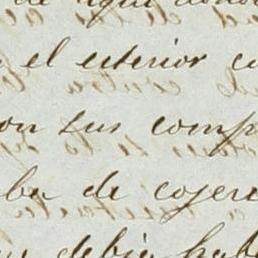 de aqui
el exterior
con sus comp
ba de cojer
debia hab